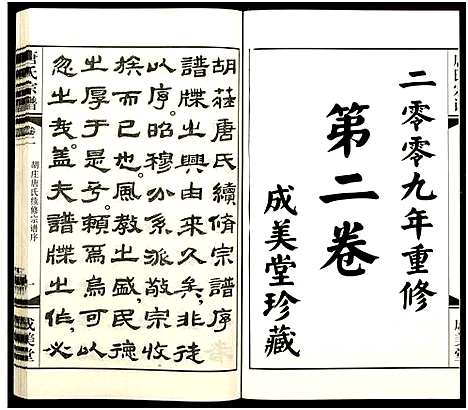 二零零九年重修
第二卷
成美堂珍藏
胡莊唐氏續修宗譜序
譜牒之興由来久矣非徒
以序昭穆分系派敬宗收
族而已也風教之盛民德
之厚于是乎賴焉烏可
忽之哉蓋夫譜牒之作必
唐氏宗譜
卷二
胡庄唐氏续修宗谱序
一
成美堂